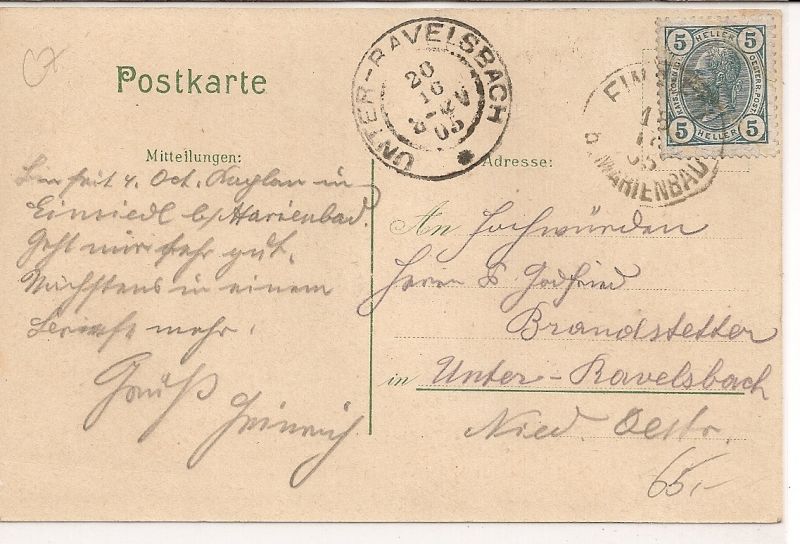 Postkarte
UNTER-RAVELSBACH
20
10
05
5 HELLER 5
5 HELLER 5
18
MARIENBAD
Mitteilungen:
Adresse:
Bin seit 4. Oct. Kaplan in
Einsiedl b/Marienbad.
Geht mir sehr gut.
Nächstens in einem
Briefe mehr.
Gruß
Heinrich
An Hochwürden
Herrn P. Godfried
Brandstetter
in Unter-Ravelsbach
Nied. Oestr.
65,-